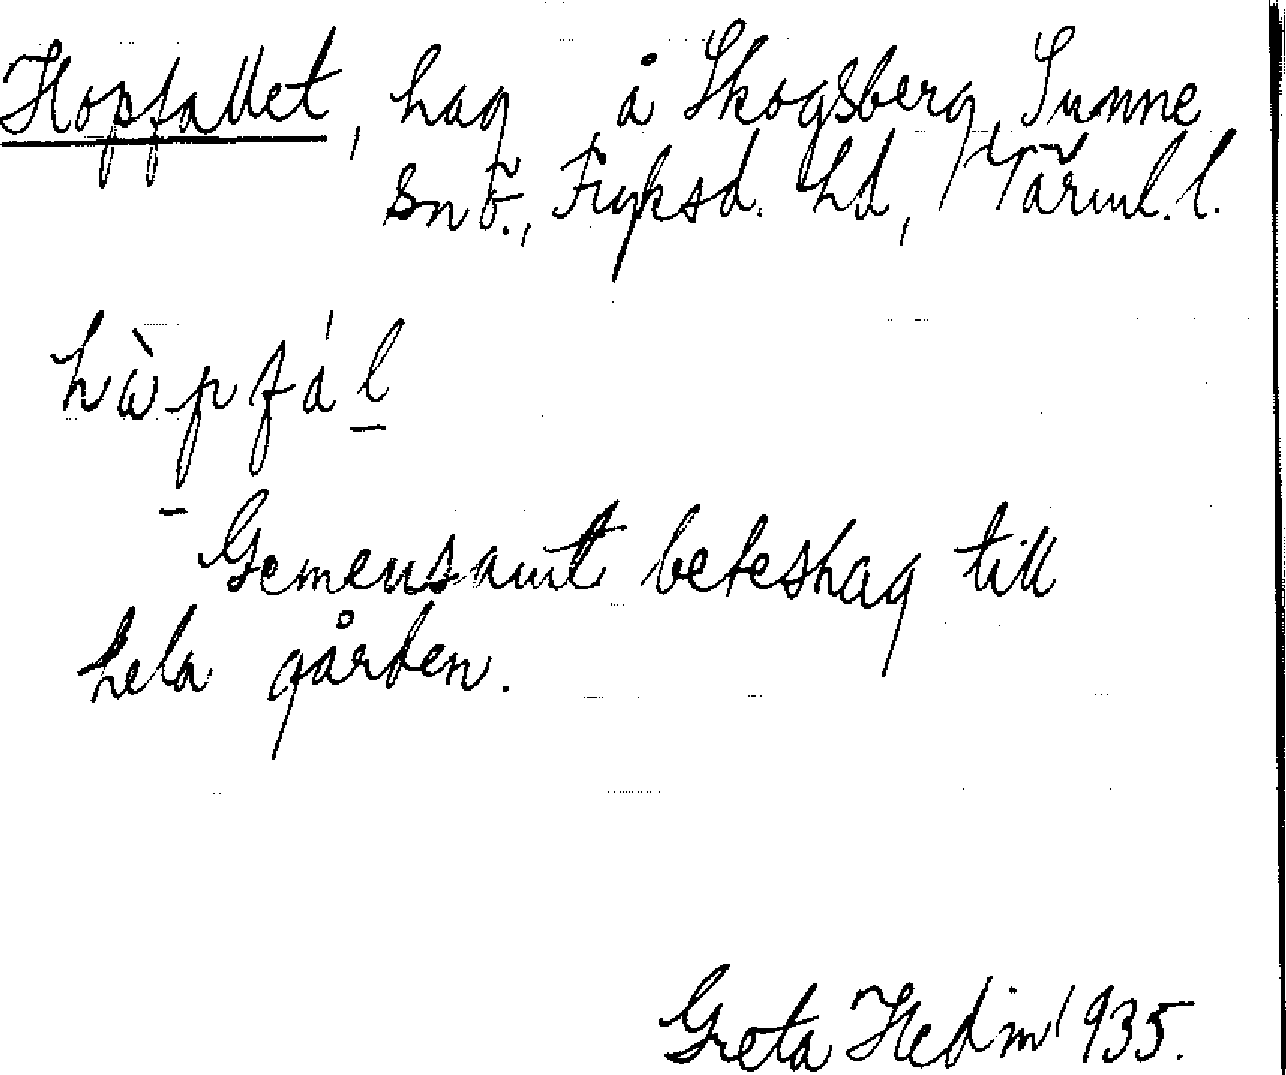 Hopfallet, hag å Skogsberg, Sunne
sn, Fryksd. hd, Värml. l.
hὼpfál
Gemensamt beteshag till
hela gården.
Greta Hedin 1935.